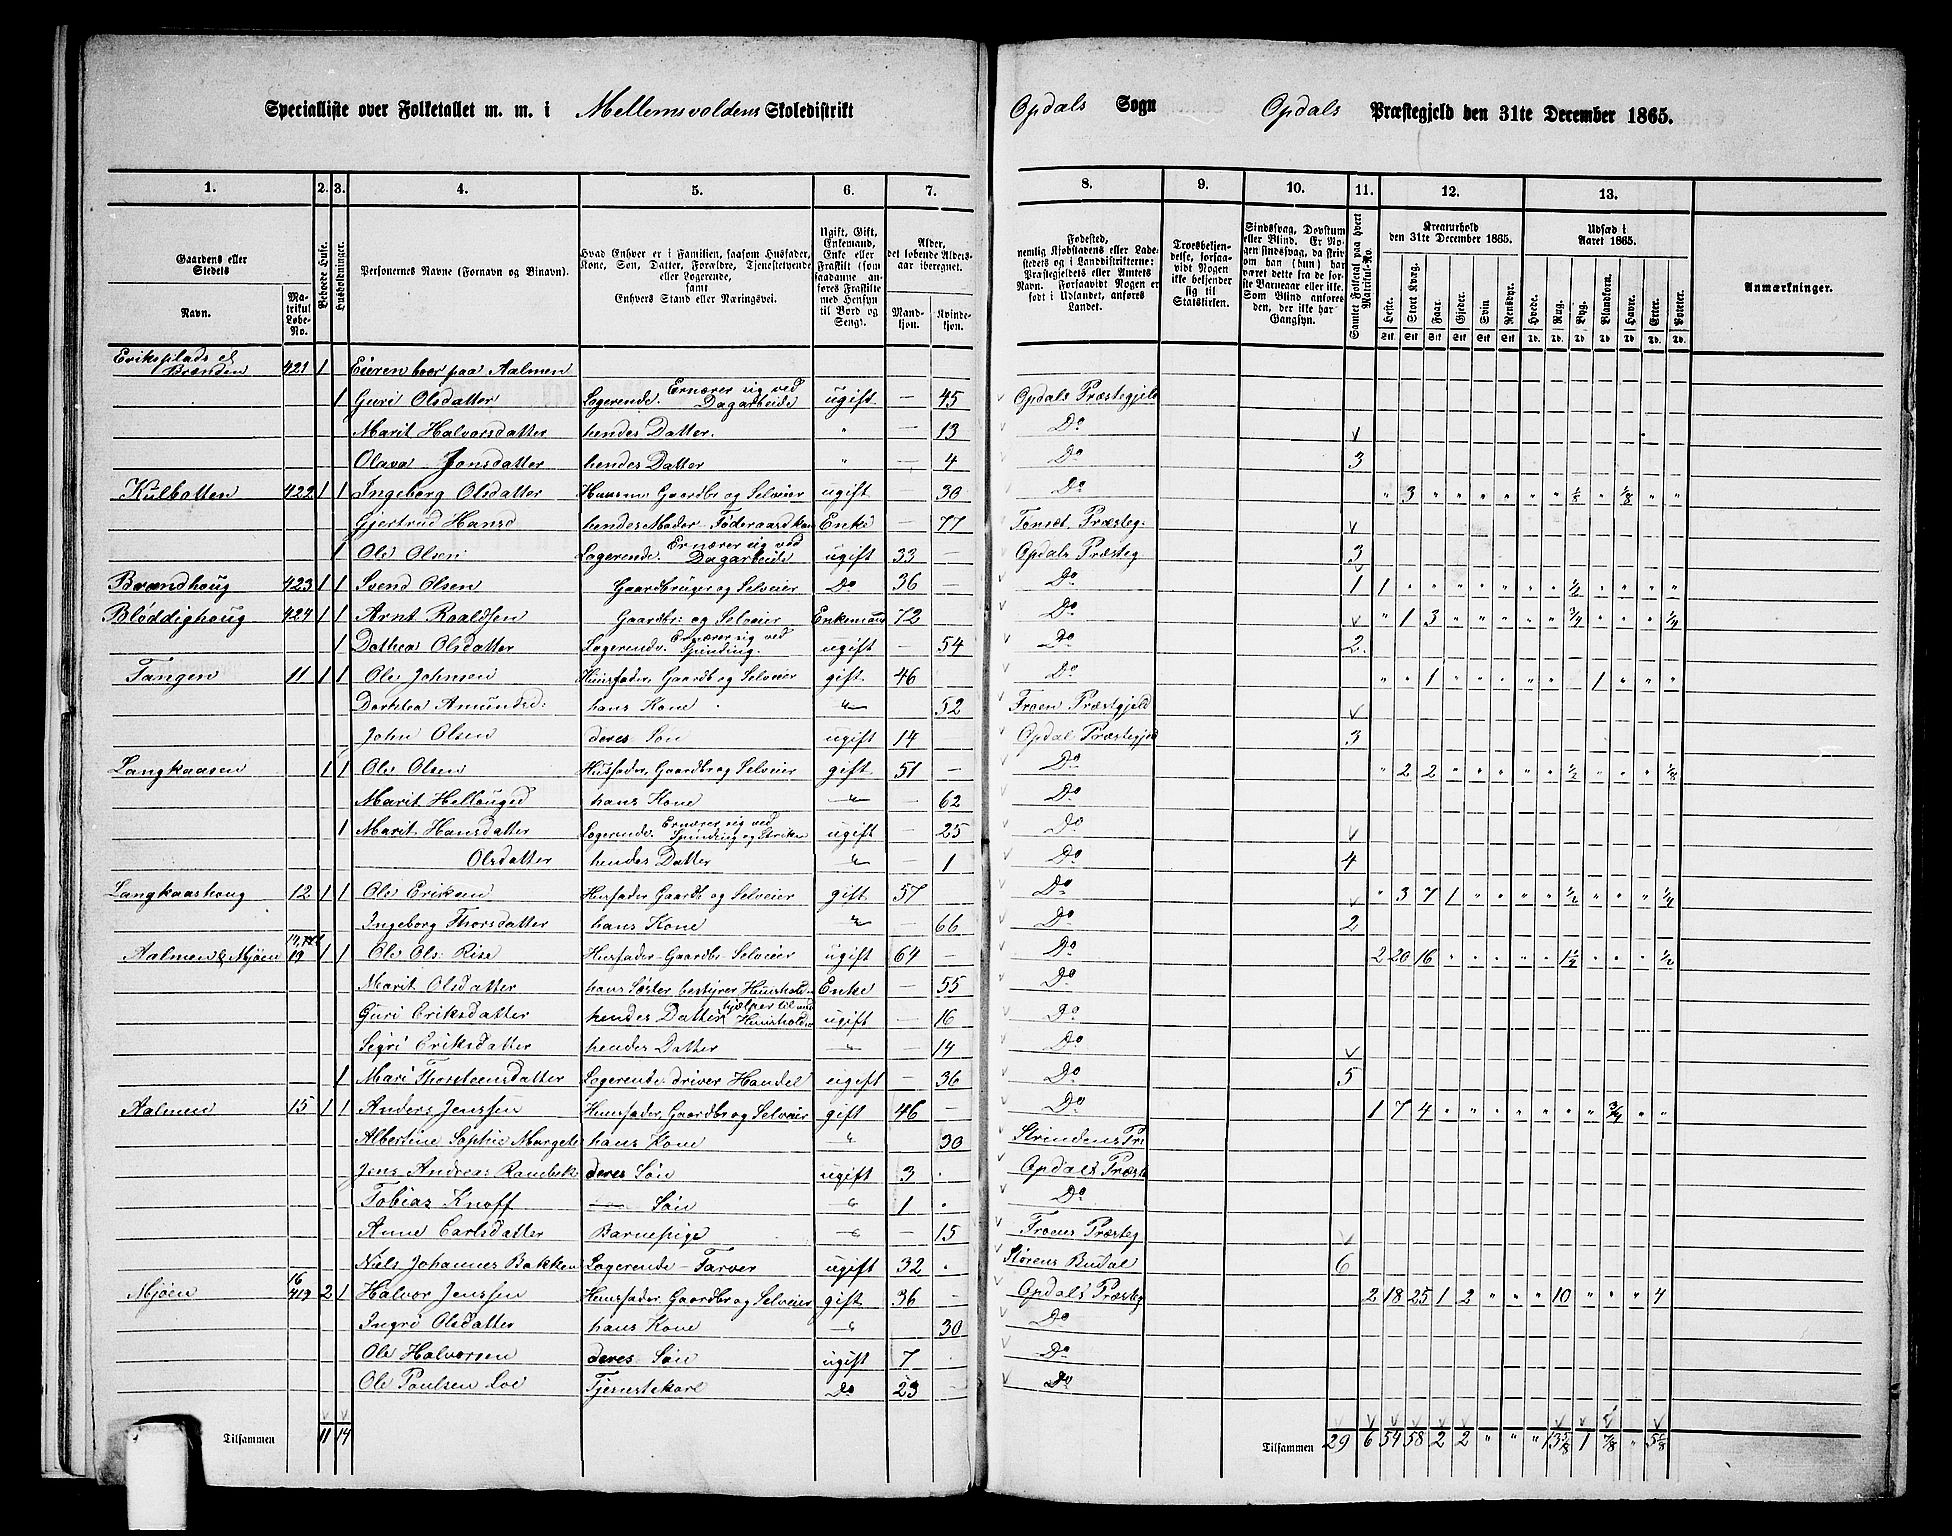 Specialliste over Folketallet m. m. i Mellemsvoldens Skoledistrikt
Opdals Sogn Opdals Præstegjeld den 31te December 1865.
1. 2. 3. 4. 5. 6. 7. 8. 9. 10. 11. 12. 13.
Gaardens eller Stedets Navn.
Matrikul Løbe-No.
Beboede Huse.
Husholdninger.
Personernes Navne (Fornavn og Binavn).
Hvad Enhver er i Familien, saasom Husfader, Kone, Søn, Datter, Forældre, Tjenestetyende eller Logerende, samt Enhvers Stand eller Næringsvei.
Ugift, Gift, Enkemand, Enke eller Fraskilt (som saadanne anføres Fraskilte med Hensyn til Bord og Seng).
Alder, det løbende Aldersaar iberegnet.
Mandkjøn. Kvindekjøn.
Fødested, nemlig Kjøbstadens eller Ladestedets og i Landdistrikterne: Præstegjeldets eller Amtets Navn. Forsaavidt Nogen er født i Udlandet, anføres Landet.
Troesbekjendelse, forsaavidt Nogen ikke bekjender sig til Statskirken.
Sindssvag, Døvstum eller Blind. Er Nogen sindssvag, da skrives om han (hun) har været dette fra de første Barneaar eller ikke. Som Blind anføres den, der ikke har Gangsyn.
Samlet Folketal paa hvert Matrikul-No.
Kreaturhold den 31te December 1865.
Heste. Stort Kvæg. Faar. Gjeder. Svin. Rensdyr.
Udsæd i Aaret 1865.
Hvede. Rug. Byg. Blandkorn. Havre. Erter. Poteter.
Anmærkninger.
Eriksplads el Brænden 421 1 Eieren boer paa Aalmen
1 Guri Olsdatter Logerende. Ernærer sig ved Dagarbeide ugift — 45 Opdals Præstegjeld
Marit Halvorsdatter hendes Datter. " — 13 Do
Olava Jonsdatter hendes Datter " — 4 Do 3
Kulbotten 422 1 1 Ingeborg Olsdatter Gaardbr og Selveier ugift 30 Do " 3 " " " " " " 1/8 " 1/8 " "
Gjertrud Hansd hendes Moder Enke — 77 Tønset Præsteg.
1 Ole Olsen Logerende. Ernærer sig ved Dagarbeide ugift 33 — Opdals Præsteg 3
Brændhoug 423 1 1 Svend Olsen Gaardbruger og Selveier Do 36 — Do 1 1 " " " " " " " 1/2 " " " "
Bløddighoug 424 1 1 Arnt Roaldsen Gaardbr: og Selveier Enkemand 72 Do " 1 3 " " " " " 3/4 " " " 1/4
1 Dathea Olsdatter Logerende. Ernærer sig ved Spinding. ugift — 54 Do 2.
Tangen 11 1 1 Ole Johnsen Huusfader, Gaardb og Selveier gift 46 Do " " 1 " " " " " " 1 " " "
Dorthea Amundsd: hans Kone " 52 Froen Præstegjeld
John Olsen deres Søn ugift 14 Opdal Præstegjeld 3
Langkaasen 1 1 Ole Olsen Husfader, Gaardbr og Selveier gift 51 — Do " 2 2 " " " " " 1/2 " " " 1/8
Marit hans Kone " 62 Do
1 Marit Hansdatter Logerende. Ernærer sig ved Spinding og Strikn ugift — 25 Do
Olsdatter hendes Datter " — 1 Do 4
Langkaashoug 12 1 1 Ole Eriksen Husfader Gaardb og Selveier gift 57 Do " 3 7 1 " " " " 1/2 " " " 1/4
Ingeborg Thorsdatter hans Kone " 66 Do 2
Aalmen & Mjøen 19 1 1 Ole Ols: Rise Husfader Gaardbr Selveier ugift 64 — Do 2 20 16 " " " " " 1 1/2 " " " 1/2
Marit Olsdatter hans Søster bestyrer Huushold Enke — 55 Do
Guri Eriksdatter hendes Datter hjælper til ved Huusholdn ugift — 16 Do
Sigri Eriksdatter hendes Datter " — 14 Do
1 Mari Thorsteensdatter Logerende driver Handel ugift — 36 Do 5
Aalmen 15 1 1 Anders Jenssen Huusfader, Gaardbr og Selveier gift 46 — Do 1 7 4 " " " " " " " 3/4 " "
Albertine Sophie Margete hans Kone " 30 Strindens Pr
Jens Andreas deres Søn ugift 3 . Opdals Præste
Tobias Knoff — Søn " 1 . Do
Anne Carlsdatter Barnepige " 15 Froens Præsteg
Niels Johannes Bakken Logerende — Farver ugift 32 . Størens Budal 6
Mjøen 16 419 2 1 Halvor Jenssen Huusfader, Gaardbr og Selveier gift 36 — Opdals Præsteg 2 18 25 1 2 " " " 10 " " " 4
Ingri Olsdatter hans Kone " 30 Do
Ole Halvorsen deres Søn ugift 7 . Do
Ole Poulsen Loe Tjenestekarl Do 23 — Do
Tilsammen 11 14
Tilsammen 29 6 54 58 2 2 " " " 13 5/8 1 7/8 " 5 5/8